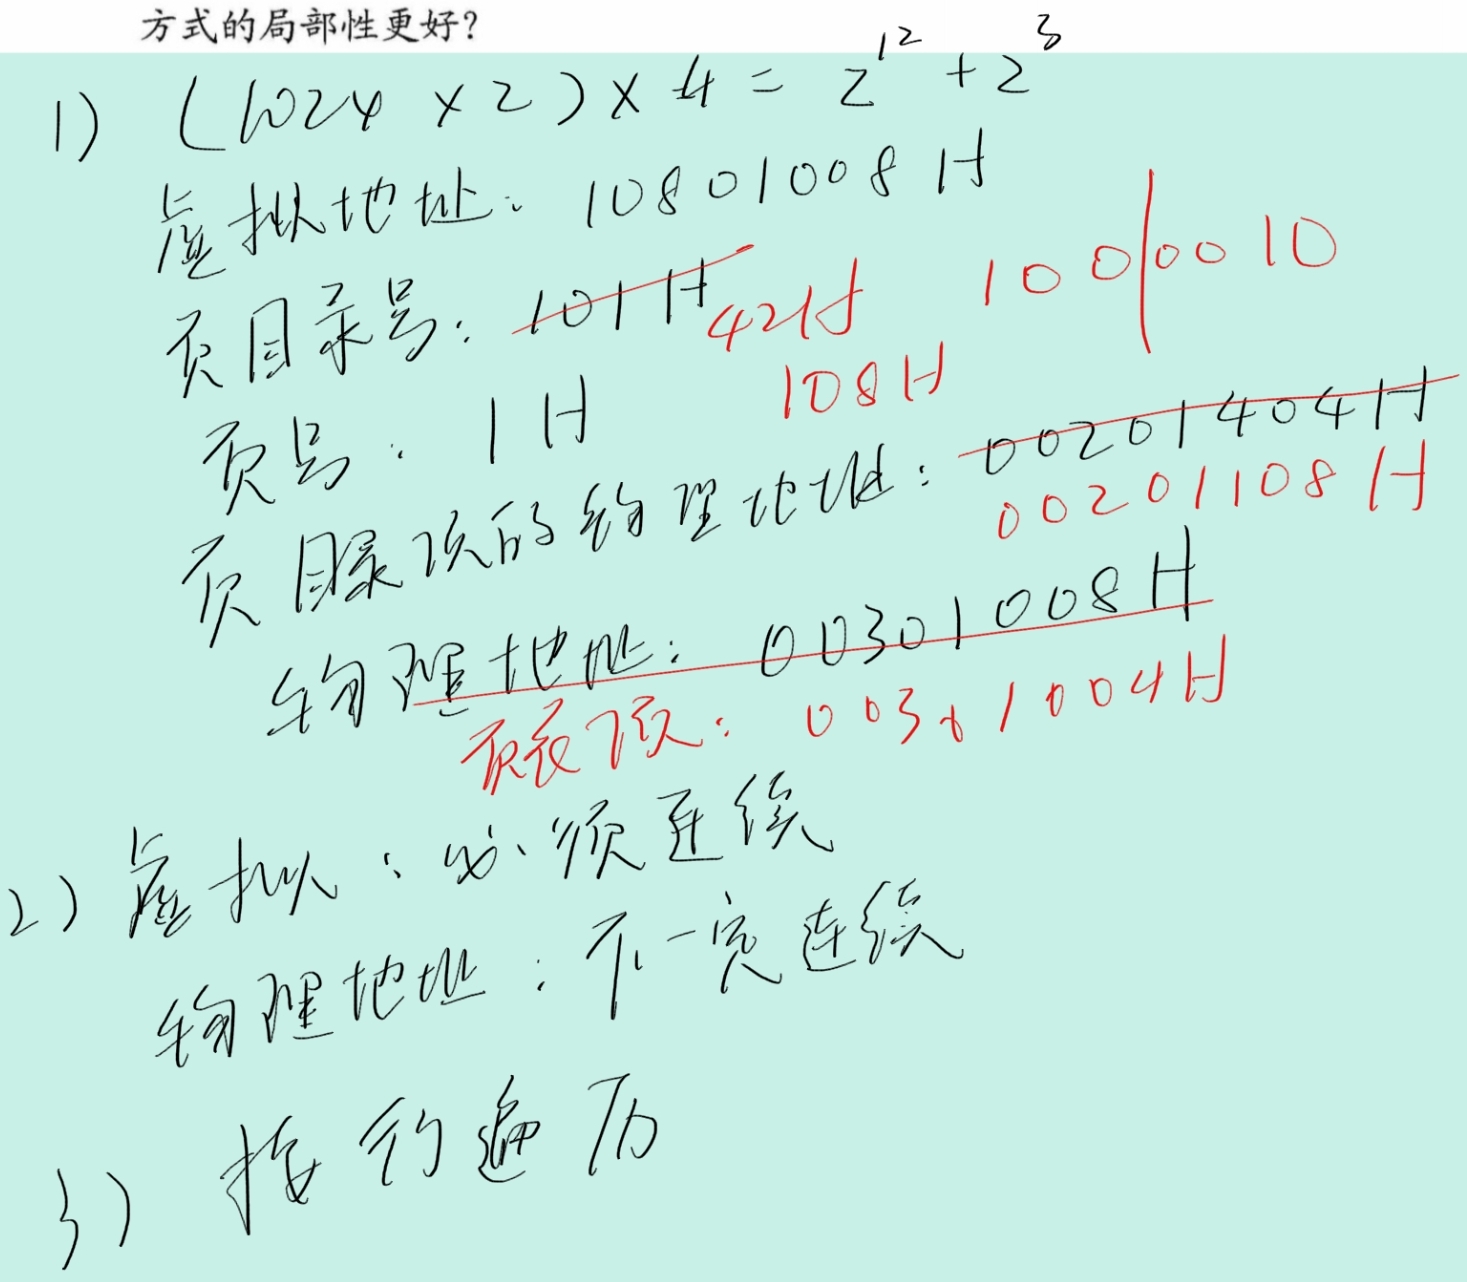 方式的局部性更好?
1) (1024 × 2) × 4 = 2^12 + 2^3
虚拟地址: 10801008H
页目录号: 101H 42H 100|0010
页号: 1H 108H
页目录项的物理地址: 00201404H
00201108H
物理地址: 00301008H
页表项: 00301004H
2) 虚拟: 必须连续
物理地址: 不一定连续
3) 按行遍历